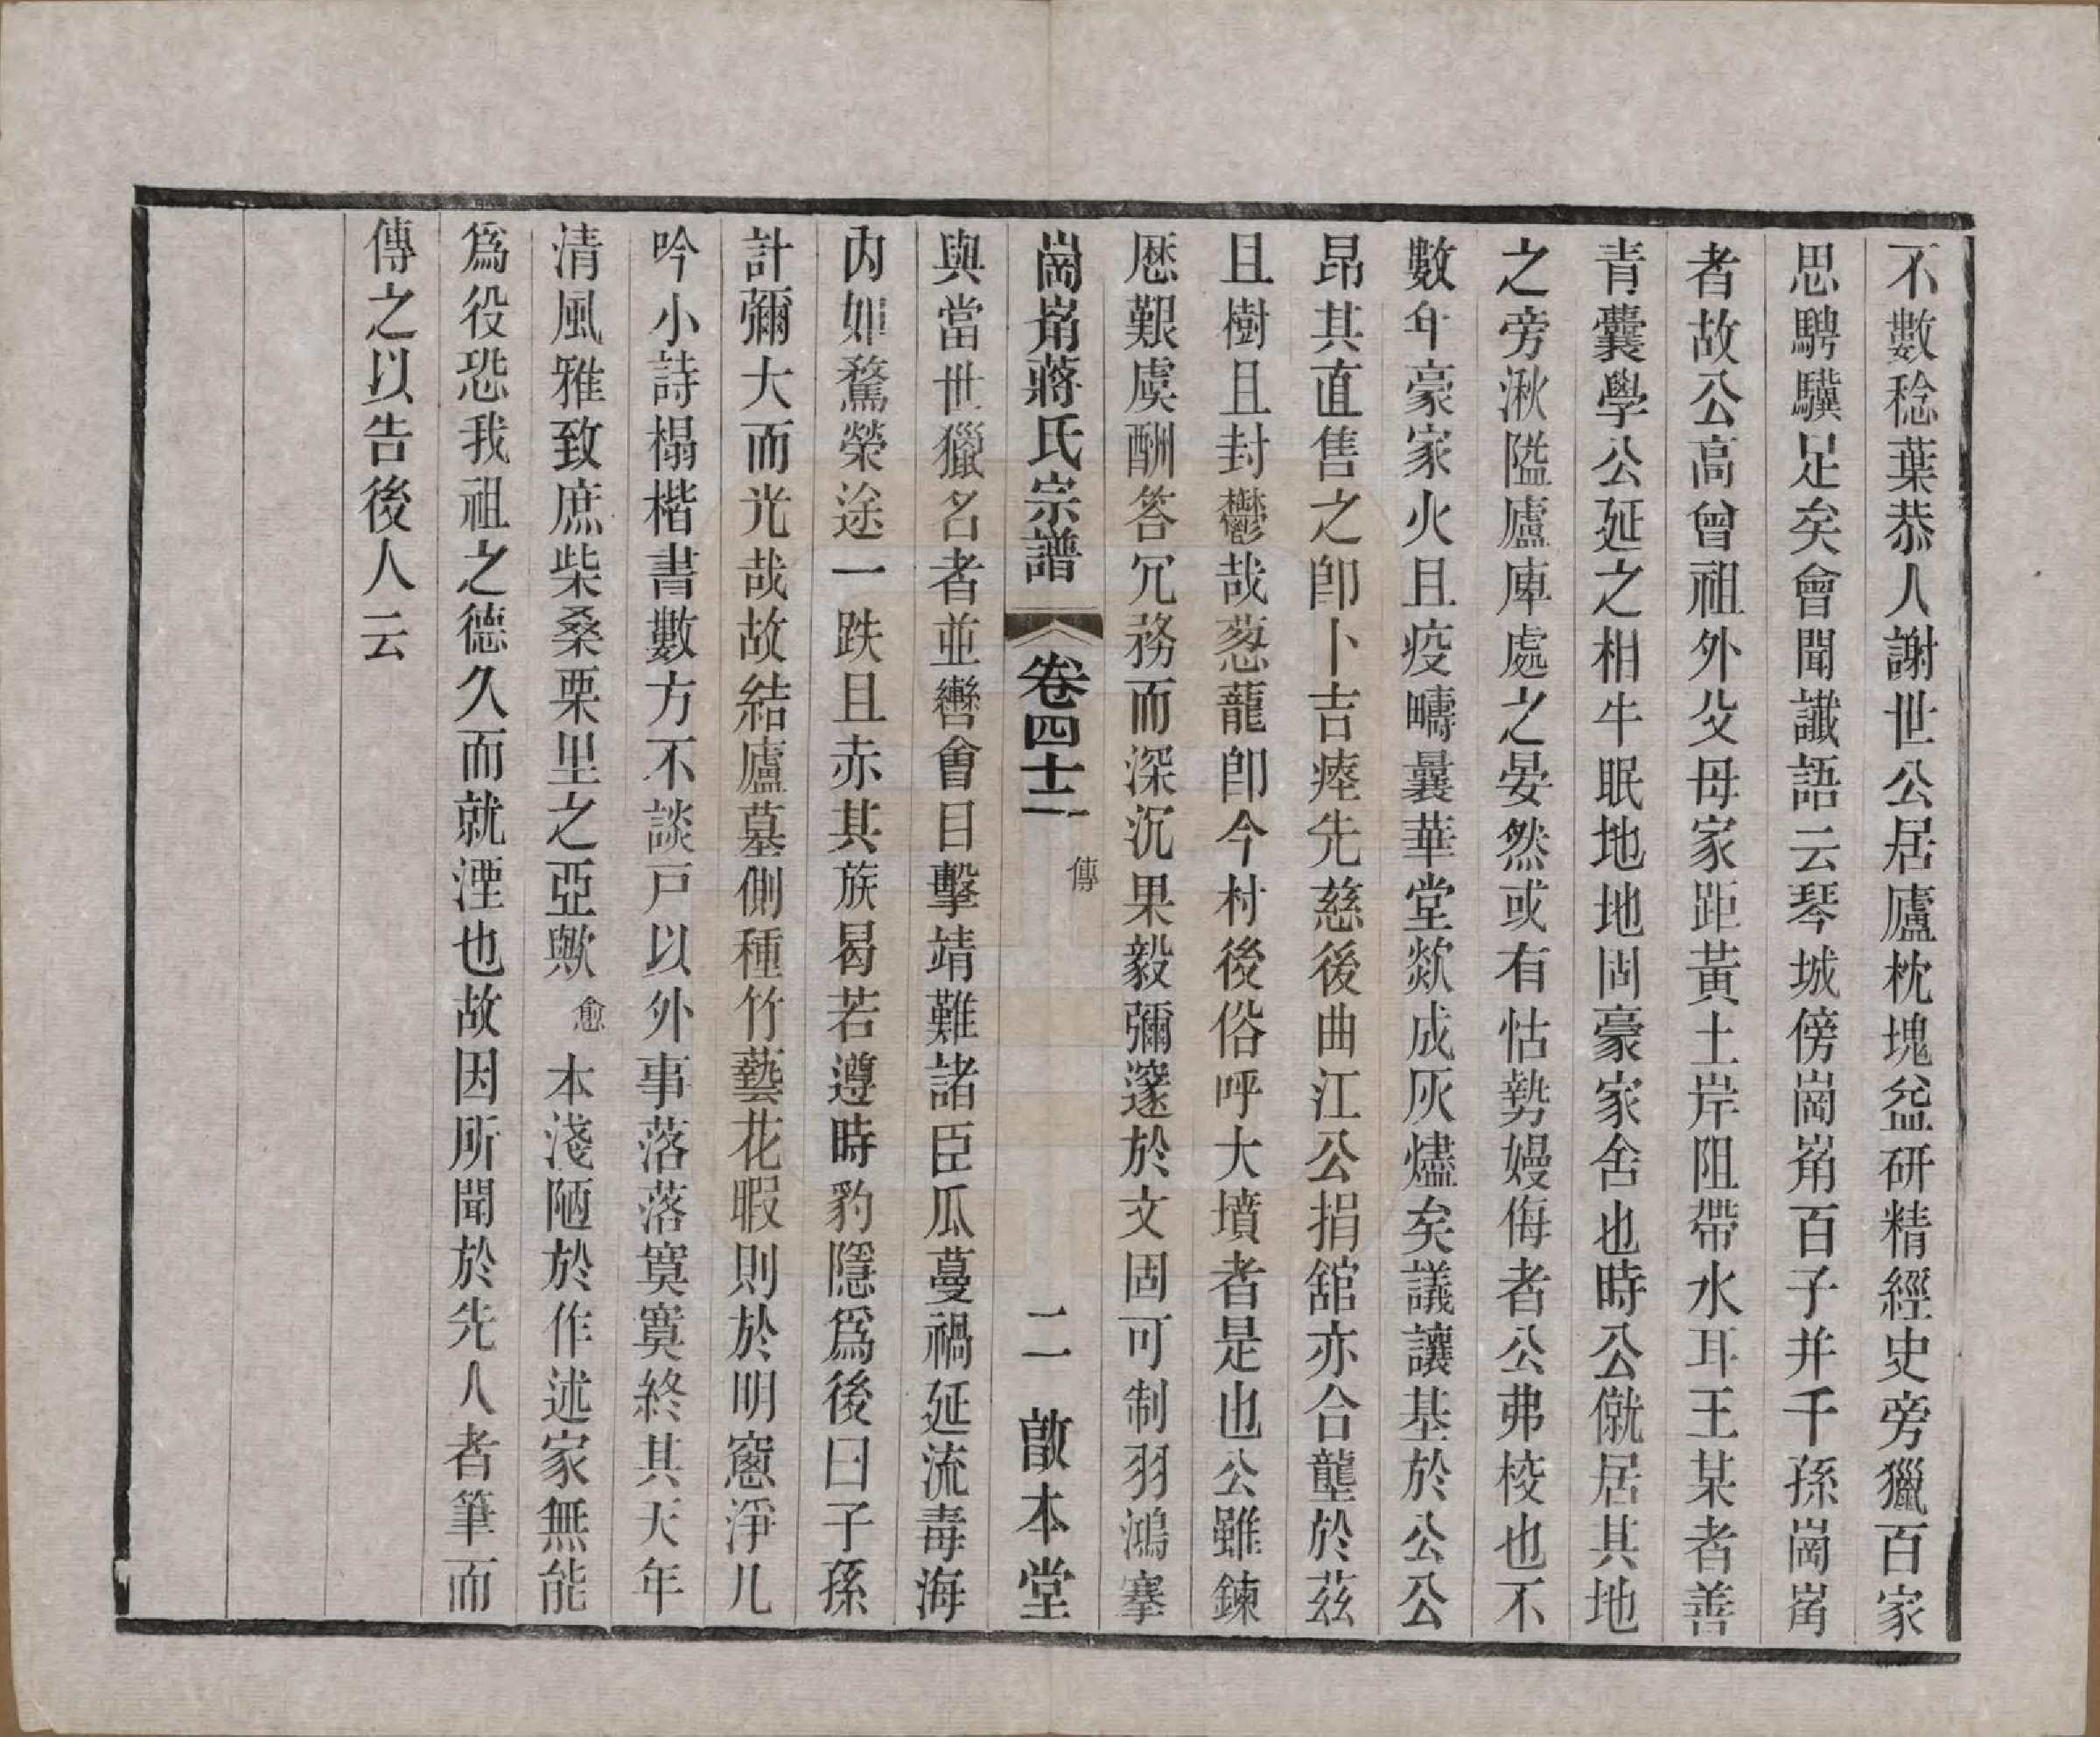 不數稔葉恭人謝世公居廬枕塊益研精經史旁獵百家
思騁驥足矣會聞讖語云琴城傍崗崤百子并千孫崗崤
者故公高曾祖外父母家距黃土岸阻帶水耳王某者善
青囊學公延之相牛眠地地固豪家舍也時公僦居其地
之旁湫隘廬庳處之晏然或有怙勢嫚侮者公弗校也不
數年豪家火且疫疇曩華堂欻成灰燼矣議讓基於公公
昂其直售之卽卜吉瘞先慈後曲江公捐舘亦合壟於茲
且樹且封鬱哉葱蘢卽今村後俗呼大墳者是也公雖鍊
厯艱虞酬答冗務而深沉果毅彌邃於文固可制羽鴻搴
崗崤蔣氏宗譜 卷四十二 傳 二 啟本堂
與當世獵名者並轡會目擊靖難諸臣瓜蔓禍延流毒海
內如騖榮途一跌且赤其族曷若遵時豹隱爲後曰子孫
計彌大而光哉故結廬墓側種竹藝花暇則於明窻淨几
吟小詩榻楷書數方不談戶以外事落落寞寞終其天年
清風雅致庶柴桑栗里之亞歟愈本淺陋於作述家無能
爲役恐我祖之德久而就湮也故因所聞於先人者筆而
傳之以告後人云